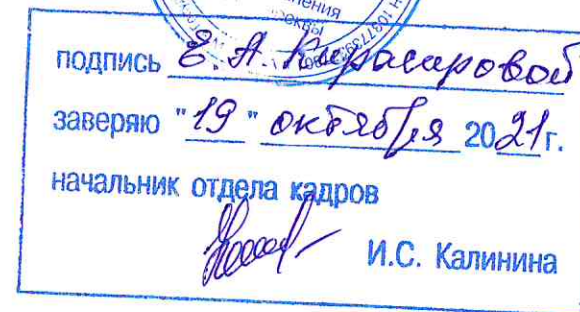 ления
сквы
подпись Е. А. Кирасировой
заверяю "19" октября 2021г.
начальник отдела кадров
И.С. Калинина